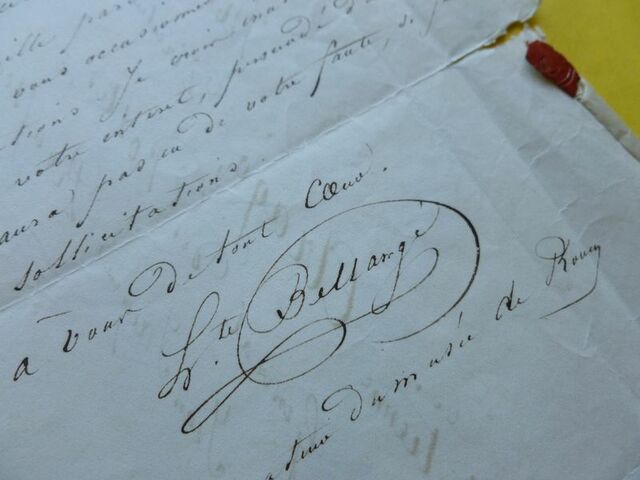 ille
vous occasionner
tions. Je crois
votre entier, persuadé
aura pas eu de votre faute,
sollicitations.
à vous de tout Cœur.
H.te Bellangé
du musée de Rouen